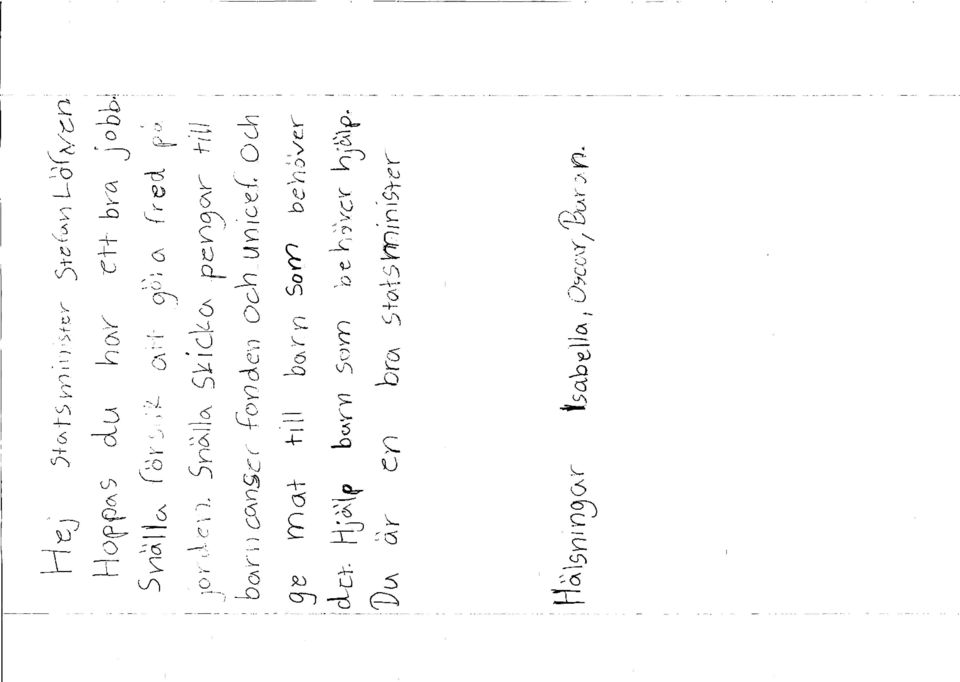 Hej Statsminister Stefan Löfven
Hoppas du har ett bra jobb.
Snälla försök att göra fred på
jorden. Snälla skicka pengar till
barncanser fonden och unicef. Och
ge mat till barn som behöver
det. Hjälp barn som behöver hjälp.
Du är en bra statsminister
Hälsningar Isabella, Oscar, Baran.